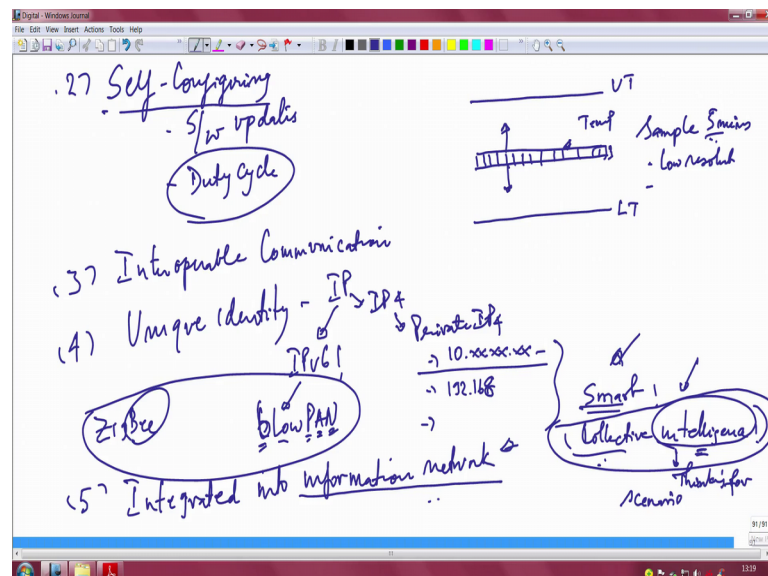 Digital - Windows Journal
File Edit View Insert Actions Tools Help
.2) Self-Configuring
- S/w updates
- Duty Cycle
UT
Temp
LT
Sample 5mins
. Low resolut
-
(3) Interoperable Communication
(4) Unique identity - IP
IP4
Private IP4
-) 10.xx.xx.xx -
-) 192.168
-)
IPv6!
ZigBee
6LowPAN
Smart!
(Collective intelligence)
Thinking for
scenario
(5) Integrated into information network
91/91
13:19